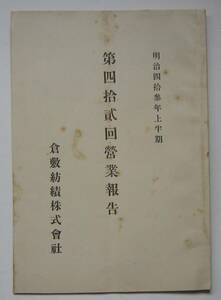 明治四拾参年上半期
第四拾貳回營業報告
倉敷紡績株式會社